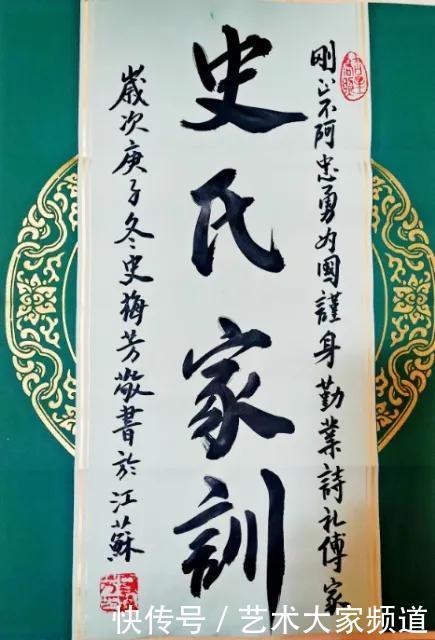 剛正不阿忠勇为國謹身勤業詩礼傳家
史氏家訓
歲次庚子冬史梅芳敬書於江蘇
快传号／艺术大家频道